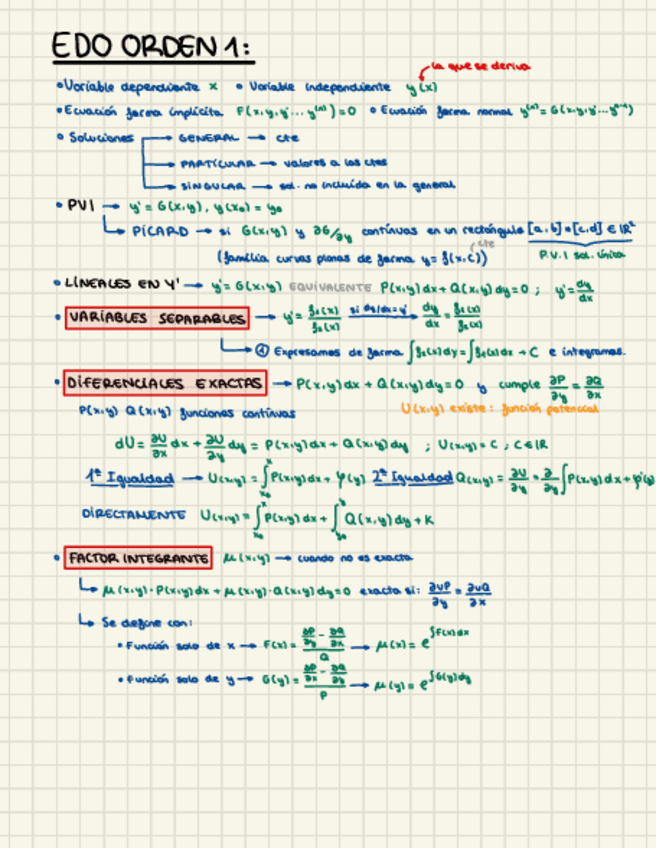 EDO ORDEN 1:
la que se deriva
• Variable dependiente x • Variable independiente y(x)
• Ecuación forma implícita F(x,y,y'... y⁽ⁿ⁾)=0 • Ecuación forma normal y⁽ⁿ⁾=G(x,y,y'...yⁿ⁻¹)
• Soluciones → GENERAL → cte
→ PARTICULAR → valores a las ctes
→ SINGULAR → sol. no incluida en la general
• PVI → y' = G(x,y), y(x₀) = y₀
→ PICARD → si G(x,y) y ∂G/∂y contínuas en un rectángulo [a,b]×[c,d] ∈ ℝ²
(família curvas planas de forma y = f(x,c)) cte P.V.I sol. única
• LÍNEALES EN Y' → y' = G(x,y) EQUIVALENTE P(x,y)dx + Q(x,y)dy = 0 ; y' = dy/dx
• VARIABLES SEPARABLES → si dy/dx = y' dy/dx =
→ ① Expresamos de forma + C e integramos.
• DIFERENCIALES EXACTAS → P(x,y)dx + Q(x,y)dy = 0 y cumple ∂P/∂y = ∂Q/∂x
P(x,y) Q(x,y) funciones contínuas U(x,y) existe: función potencial
dU = ∂U/∂x dx + ∂U/∂y dy = P(x,y)dx + Q(x,y)dy ; U(x,y) = C ; C∈ℝ
1ª Igualdad → U(x,y) = ∫P(x,y)dx + φ(y) 2ª Igualdad Q(x,y) = ∂U/∂y = ∂/∂y ∫P(x,y)dx + φ'(y)
DIRECTAMENTE U(x,y) = ∫P(x,y)dx + ∫Q(x,y)dy + K
• FACTOR INTEGRANTE μ(x,y) → cuando no es exacta
→ μ(x,y)·P(x,y)dx + μ(x,y)·Q(x,y)dy = 0 exacta si: ∂υP/∂y = ∂υQ/∂x
→ Se define con:
• Función solo de x → F(x) = (∂P/∂y − ∂Q/∂x)/Q → μ(x) = e^∫F(x)dx
• Función solo de y → G(y) = → μ(y) = e^∫G(y)dy